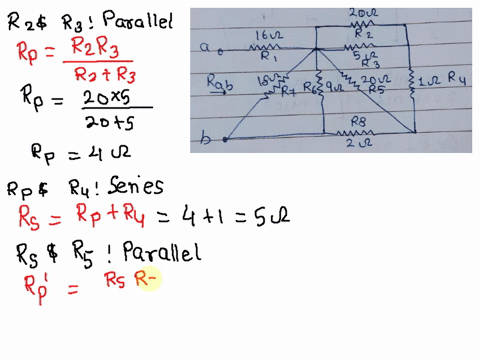 R2 & R3 : Parallel
Rp = R2R3 / R2 + R3
Rp = 20×5 / 20+5
Rp = 4Ω
Rp & R4 : Series
Rs = Rp + R4 = 4 + 1 = 5Ω
Rs & R5 : Parallel
Rp' = Rs R
20Ω
R2
a
16Ω
R1
5Ω
R3
Rab
18Ω
R7
R6
9Ω
20Ω
R5
1Ω R4
b
R8
2Ω